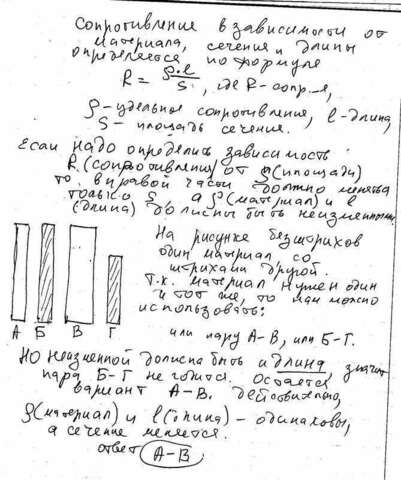 Сопротивление в зависимости от
материала, сечения и длины
определяется по формуле
R = ρ·l/S, где R-сопр-е,
ρ-удельное сопротивление, l-длина,
S-площадь сечения.
Если надо определить зависимость
R(сопротивления) от S(площади)
то в правой части должно меняться
только S а ρ(материал) и l
(длина) должны быть неизменными.
На рисунке без штрихов
один материал, со
штрихами другой.
Т.к. материал нужен один
и тот же, то нам можно
использовать:
А Б В Г
или пару А-В, или Б-Г.
Но неизменной должна быть и длина, значит
пара Б-Г не годится. Остается
вариант А-В. Действительно,
ρ(материал) и l(длина) - одинаковы,
а сечение меняется.
ответ А-В